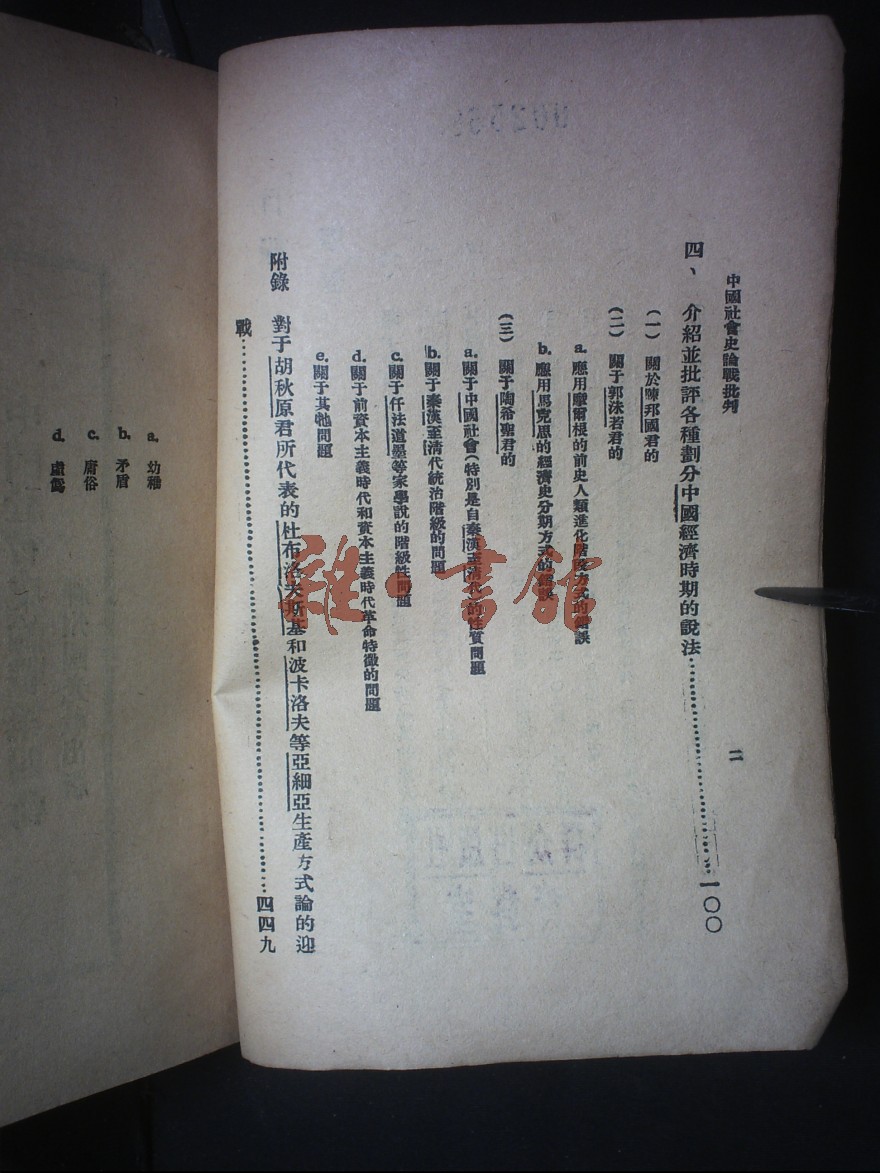 中國社會史論戰批判
二
四、介紹並批評各種劃分中國經濟時期的說法……一〇〇
(一) 關於陳邦國君的
(二) 關于郭沫若君的
a. 應用摩爾根的前史人類進化階段方式的錯誤
b. 應用馬克思的經濟史分期方式的錯誤
(三) 關于陶希聖君的
a. 關于中國社會(特別是自秦漢至清代)的性質問題
b. 關于秦漢至清代統治階級的問題
c. 關于仟法道墨等家學說的階級性問題
d. 關于前資本主義時代和資本主義時代革命特徵的問題
e. 關于其牠問題
附錄 對于胡秋原君所代表的杜布洛夫斯基和波卡洛夫等亞細亞生產方式論的迎
戰……四四九
a. 幼稚
b. 矛盾
c. 庸俗
d. 虛僞
雜·書館